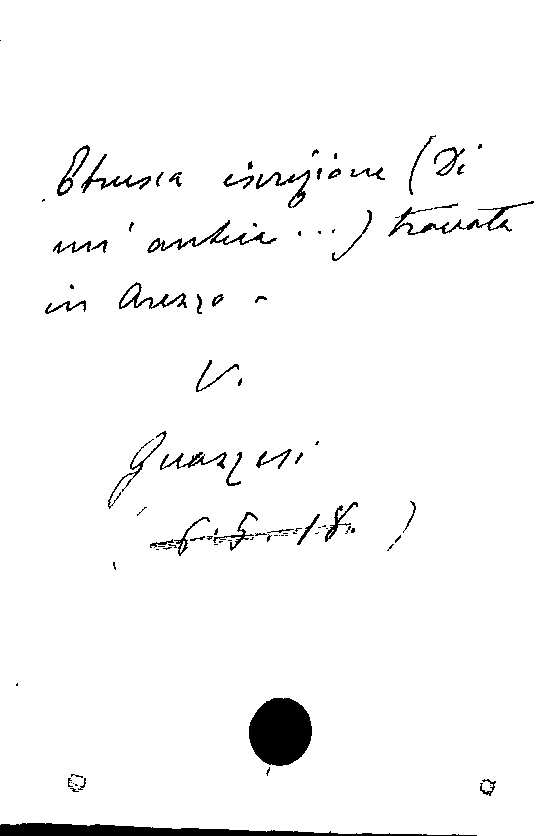 Etrusca iscrizione (Di
un' antica ...) trovata
in Arezzo -
V.
Guazzesi
( 6.5.18. )